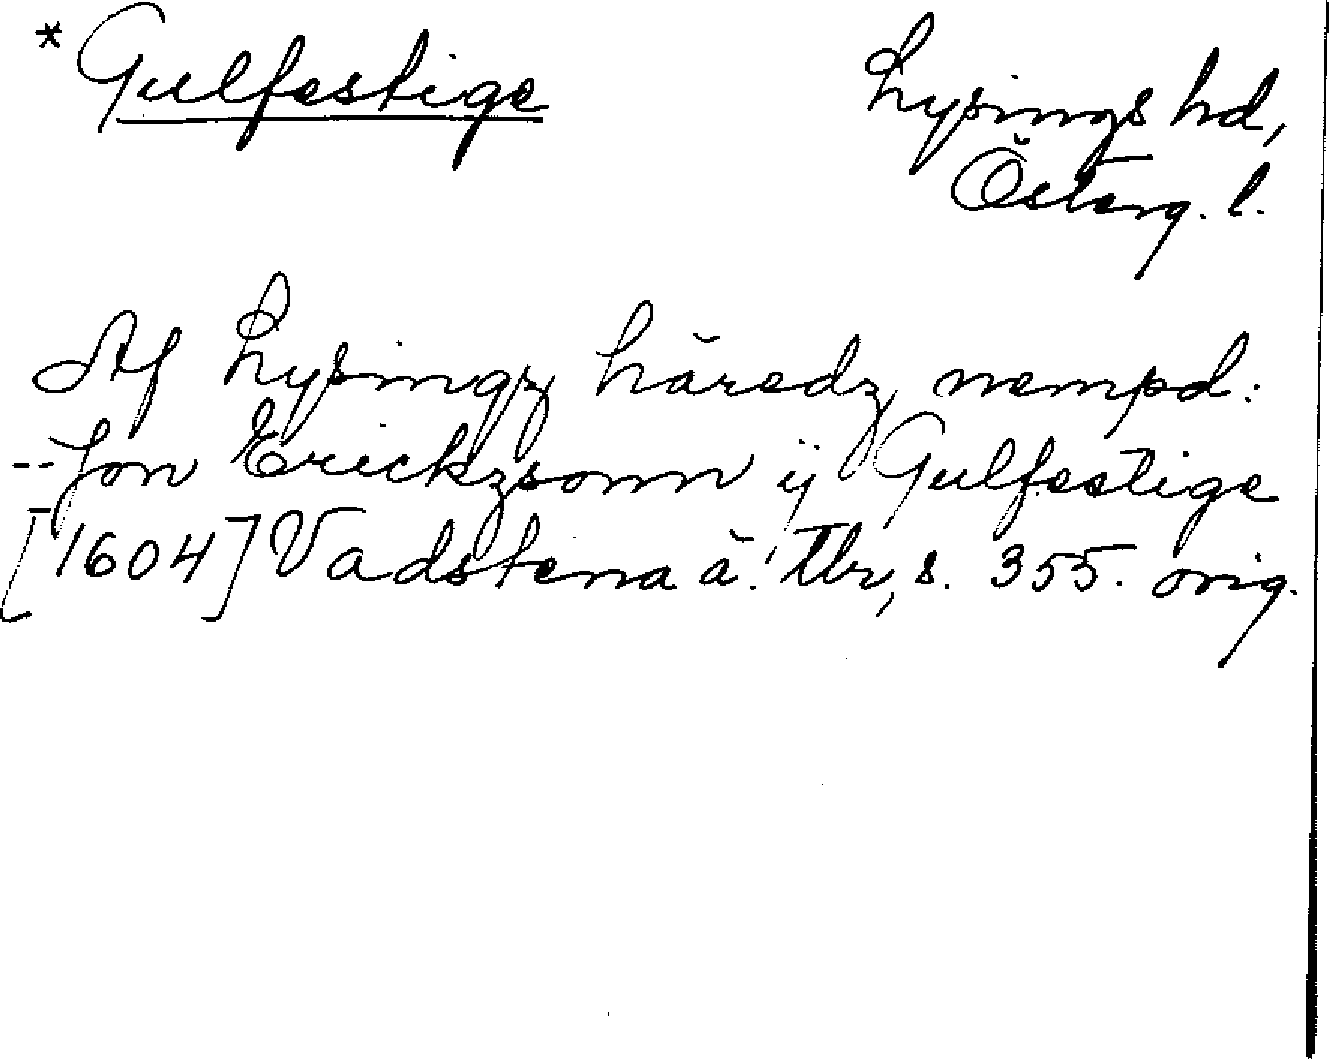 * Gulfestige
Lysings hd,
Österg. l.
Af Lysingz häredz nempd:
-- Jon Erickzsonn ij Gulfestige
[1604] Vadstena ä. Tbr, s. 355. orig.